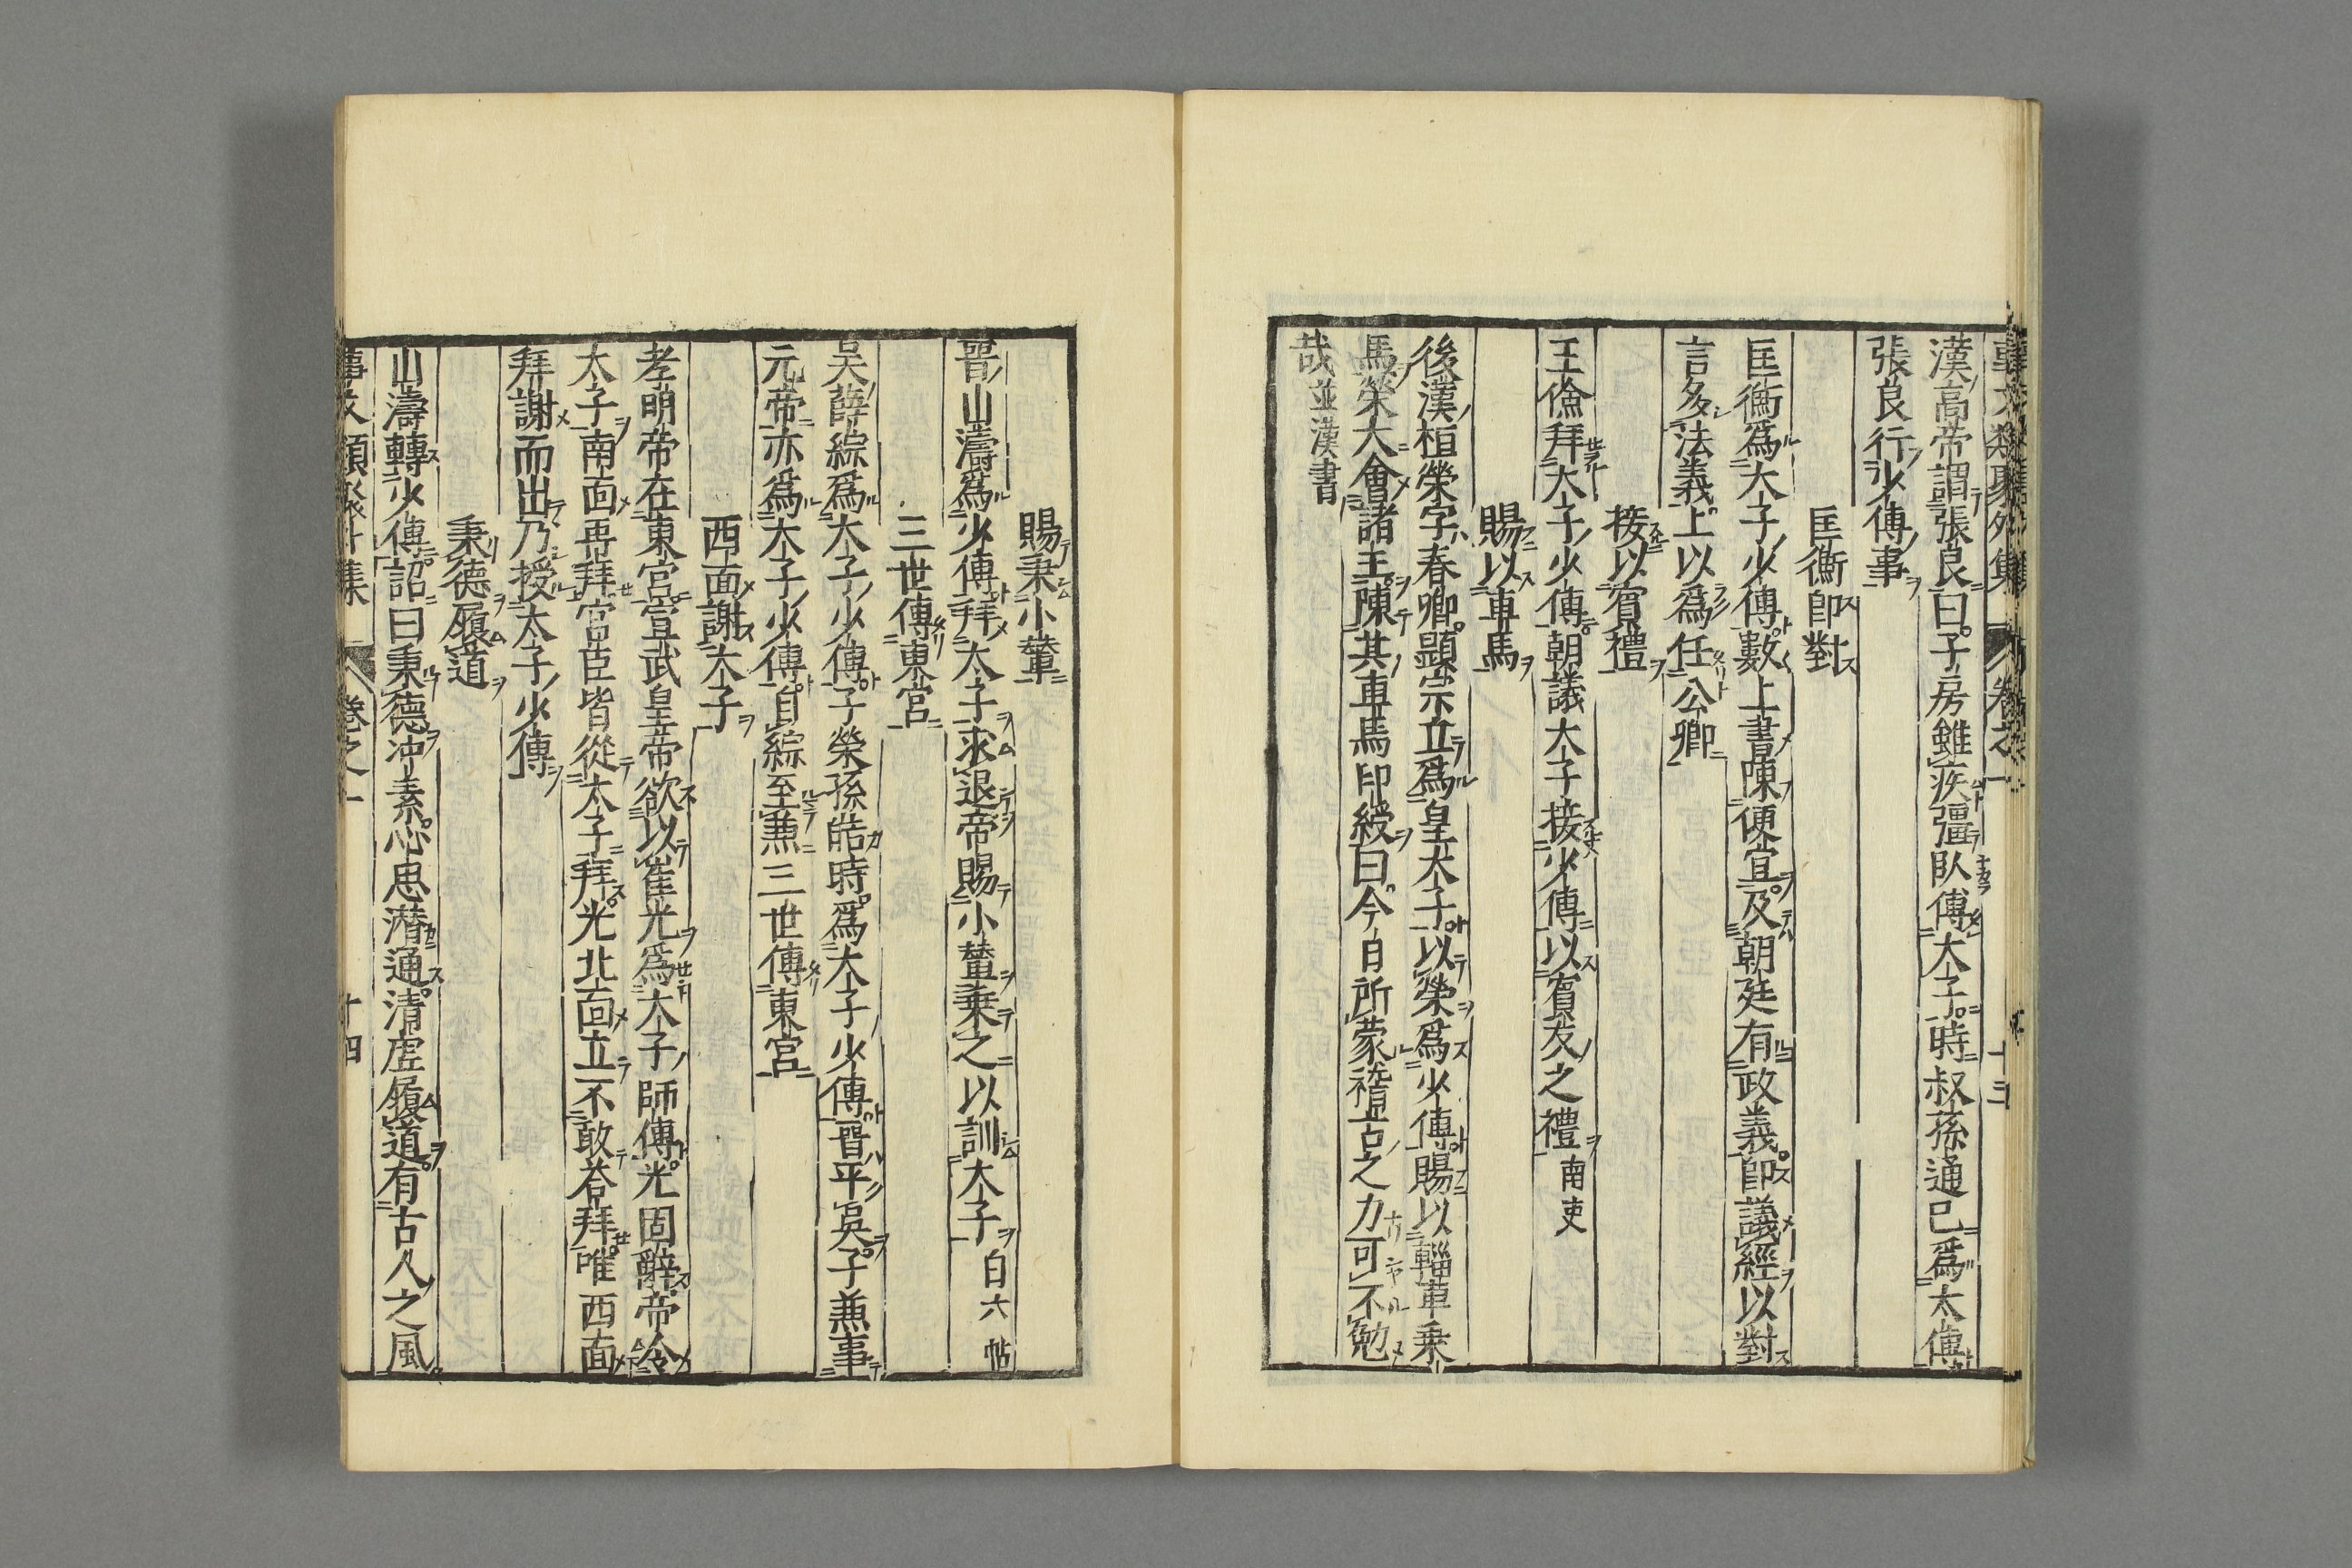 事文類聚外集 卷之一 十三
漢高帝謂張良曰子房雖疾彊臥傅太子時叔孫通已爲太傅
張良行少傅事
匡衡卽對
匡衡爲太子少傅數上書陳便宜及朝廷有政義卽議經以對
言多法義上以爲任公卿
接以賓禮
王儉拜太子少傅朝議太子接少傅以賓友之禮南史
賜以車馬
後漢桓榮字春卿顯宗立爲皇太子以榮爲少傅賜以輜車乗
馬榮大會諸王陳其車馬印綬曰今日所蒙稽古之力可不勉
哉並漢書
賜乗小輦
晋山濤爲少傅拜太子求退帝賜小輦乗之以訓太子白六帖
三世傅東宮
吴薛綜爲太子少傅子榮孫皓時爲太子少傅晋平吴子兼事
元帝亦爲太子少傅自綜至兼三世傅東宮
西面謝太子
孝明帝在東宮宣武皇帝欲以崔光爲太子師傅光固辭帝令
太子南面再拜宮臣皆從太子拜光北面立不敢荅拜唯西面
拜謝而出乃授太子少傅
秉德履道
山濤轉少傅詔曰秉德冲素心思潜通清虚履道有古人之風
事文類聚外集 卷之一 十四